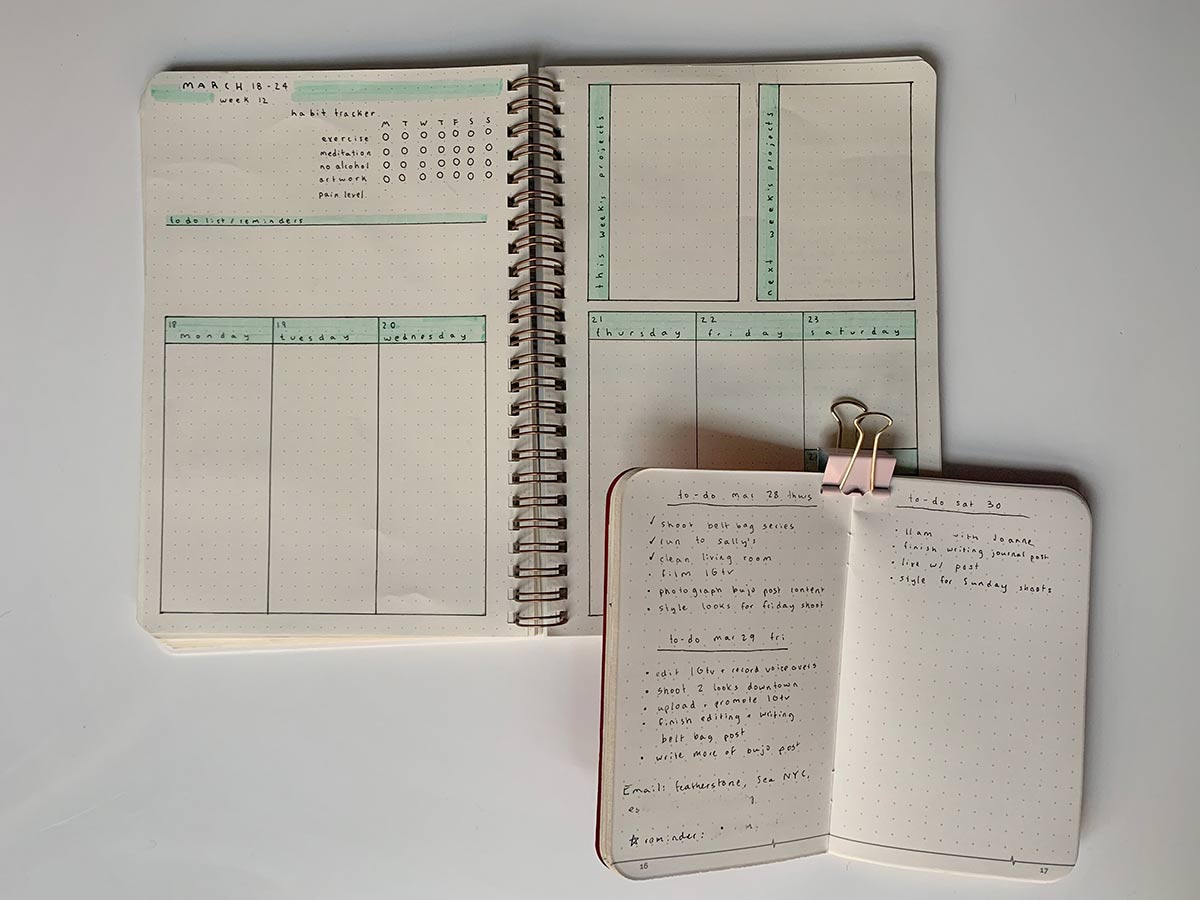 MARCH 18-24
week 12
habit tracker
M T W T F S S
exercise
meditation
no alcohol
artwork
pain level
to do list / reminders
18 19 20
monday tuesday wednesday
this week's projects
next week's projects
21 22 23
thursday friday saturday
to-do mar 28 thurs
✓ shoot belt bag series
✓ run to sally's
✓ clean living room
• film IGtv
• photograph bujo post content
• style looks for friday shoot
to-do mar 29 fri
• edit IGtv + record voiceovers
• shoot 2 looks downtown
• upload + promote IGtv
• finish editing + writing
belt bag post
• write more of bujo post
Email: featherstone, Sea NYC,
☆ reminder:
16
to-do sat 30
• 11am with Joanne
• finish writing journal post
• live w/ post
• style for Sunday shoots
17